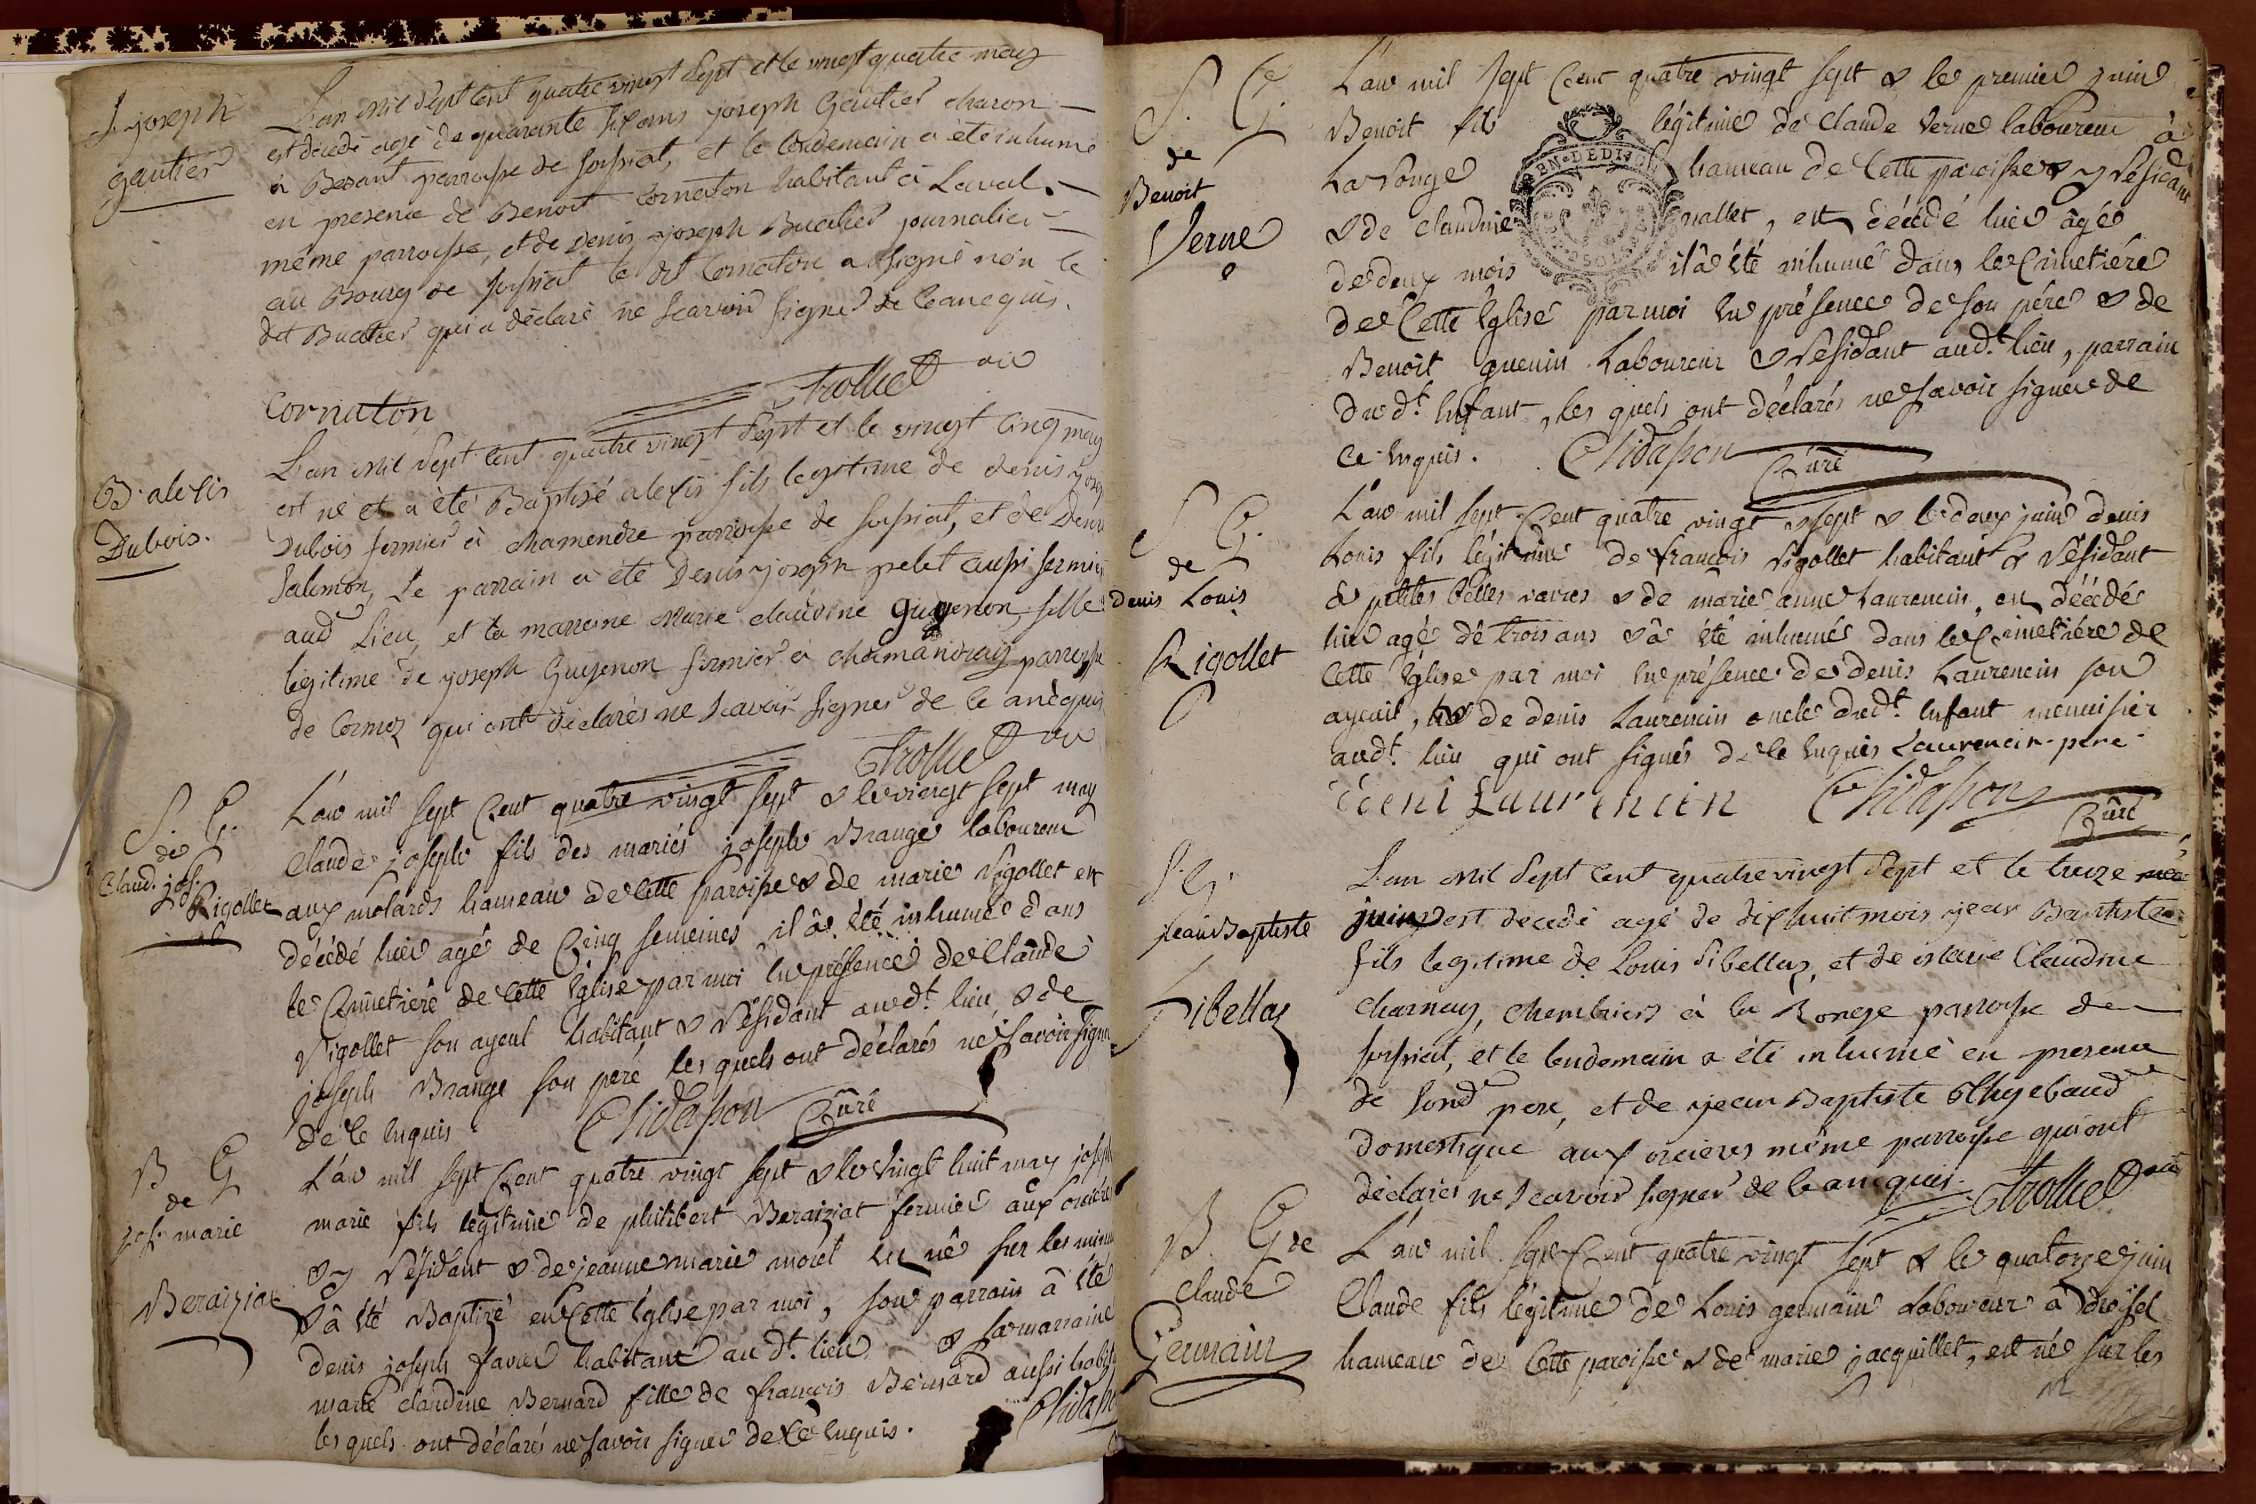 S. joseph
gautier
L'an mil sept cent quatre vingt sept et le vingt quatre may
est décédé agé de quarante six ans joseph Gautier charon
à Besant parroisse de forsiat, et le lendemain a été inhumé
en presence de Benoit Cornaton habitant à Laval
même parroisse, et de Denis joseph Buatier journalier
au Bourg de forsiat le dit Cornaton a signé non le
dit Buatier qui a déclaré ne scavoir signer de ce anequis.
Cornaton
Trolliet vic
B. alexis
Dubois.
L'an mil sept cent quatre vingt sept et le vingt cinq may
est né et a été Baptisé alexis fils legitime de denis
Dubois fermier à chamendre parroisse de forsiat, et de
Salomon, le parrain a été Denis joseph pelet aussi fermier
aud lieu, et la marraine Marie claudine Guyenon, fille
légitime de joseph Guyenon fermier à chamandray parroisse
de Cormoz qui ont déclarés ne scavoir signer de ce anequis
Trolliet vic
S. G.
de
Claud. jos.
Rigollet
L'an mil sept Cent quatre vingt sept & le vingt sept may
Claude joseph fils des mariés joseph Brange laboureur
aux molards hameau de cette paroisse & de marie Rigollet est
décédé hier agé de Cinq semeines, il â été inhumé dans
le Cemetiere de cette Eglise par moi en présence de Claude
Rigollet son ayeul habitant & résidant aud.t lieu & de
joseph Brange son pere, les quels ont déclarés ne savoir signer
de ce Enquis
Chidasson Curé
B G
de
jos. marie
Beraiziat
L'an mil sept Cent quatre vingt sept & le vingt huit may joseph
marie fils légitime de philibert Beraiziat fermier aux orcieres
& y résidant & de jeanne marie morel est né sur les minu
& â été Baptizé en cette Eglise par moi, son parrain â été
denis joseph favier habitant au d.t lieu & sa marraine
marie claudine Bernard fille de francois Bernard aussi habit
les quels ont déclarés ne savoir signer de ce Enquis.
Chidasson
S. G.
de
Benoit
Verne
L'an mil sept Cent quatre vingt sept & le premier juin
Benoit fils légitime de claude verne laboureur à
La ronge hameau de Cette paroisse & y résidant
& de claudine nallet, est décédé hier âgé
de deux mois il â été inhumé dans le Cimetiére
de Cette Eglise par moi en présence de son pére & de
Benoit guenin Laboureur & résidant aud.t lieu, parrain
du d.t Enfant, les quels ont déclarés ne savoir signer de
ce Enquis.
Chidasson Curé
S G.
de
denis Louis
Rigollet
L'an mil sept Cent quatre vingt sept & le deux juin denis
Louis fils légitime de françois Rigollet habitant & résidant
à petites belles vavres & de marie anne Laurencin, est décédé
hier agé de trois ans & â été inhumé dans le Cimetiére de
Cette Eglise par moi en présence de denis Laurencin son
ayeuil, & de denis Laurencin oncle dud.t Enfant menuisier
aud.t lieu qui ont signés de ce Enquis Laurencin pere
deni Laurencin
Chidasson Curé
S. G.
jean Baptiste
Sibellas
L'an mil sept cent quatre vingt sept et le treize
juin est decedé agé de dix huit mois jean Baptiste
fils legitime de Louis Sibellas, et de Marie Claudine
charnay, chambriers à la Ronge parroisse de
forsiat, et le lendemain a été inhumé en presence
de sond pere, et de jean Baptiste Thyebaud
domestique aux orcieres même parroisse qui ont
déclarés ne scavoir signer de ce anequis. Trolliet vic
B. G de
claude
Germain
L'an mil sept Cent quatre vingt sept & le quatorze juin
Claude fils légitime de Louis germain Laboureur à
hameau de Cette paroisse & de marie jacquillet, est né sur les